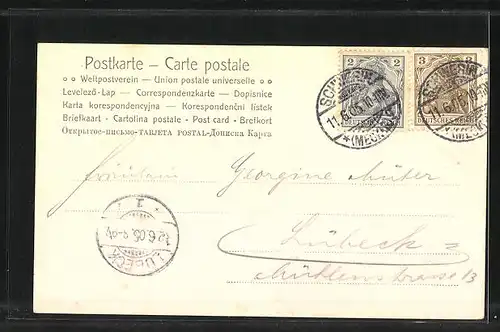 Postkarte – Carte postale
Weltpostverein — Union postale universelle
Levelező-Lap — Correspondenzkarte — Dopisnice
Karta korespondencyjna — Korespondenční lístek
Briefkaart · Cartolina postale · Post card · Brefkort
Открытое-письмо-ТАRJETA POSTAL-Дописна Карта
2 2
DEUTSCHES REICH
3 3
DEUTSCHES REICH
SCHWERIN
11.6.05
*(MECKL)
SCHWERIN
11.6.05
(MECKL)
Fräulein Georgine Müter
Lübeck
Mühlenstrasse 13
LÜBECK
12.6.05.
1